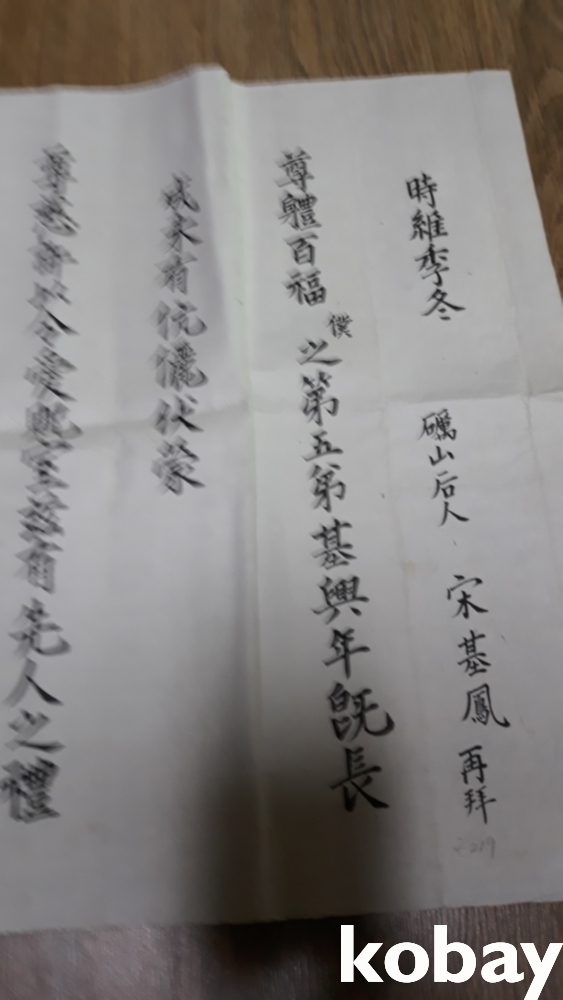 時維季冬 礪山后人 宋基鳳 再拜
尊軆百福 僕之第五第基興年旣長
成未有伉儷伏蒙
尊慈許以令愛貺室玆有先人之禮
kobay